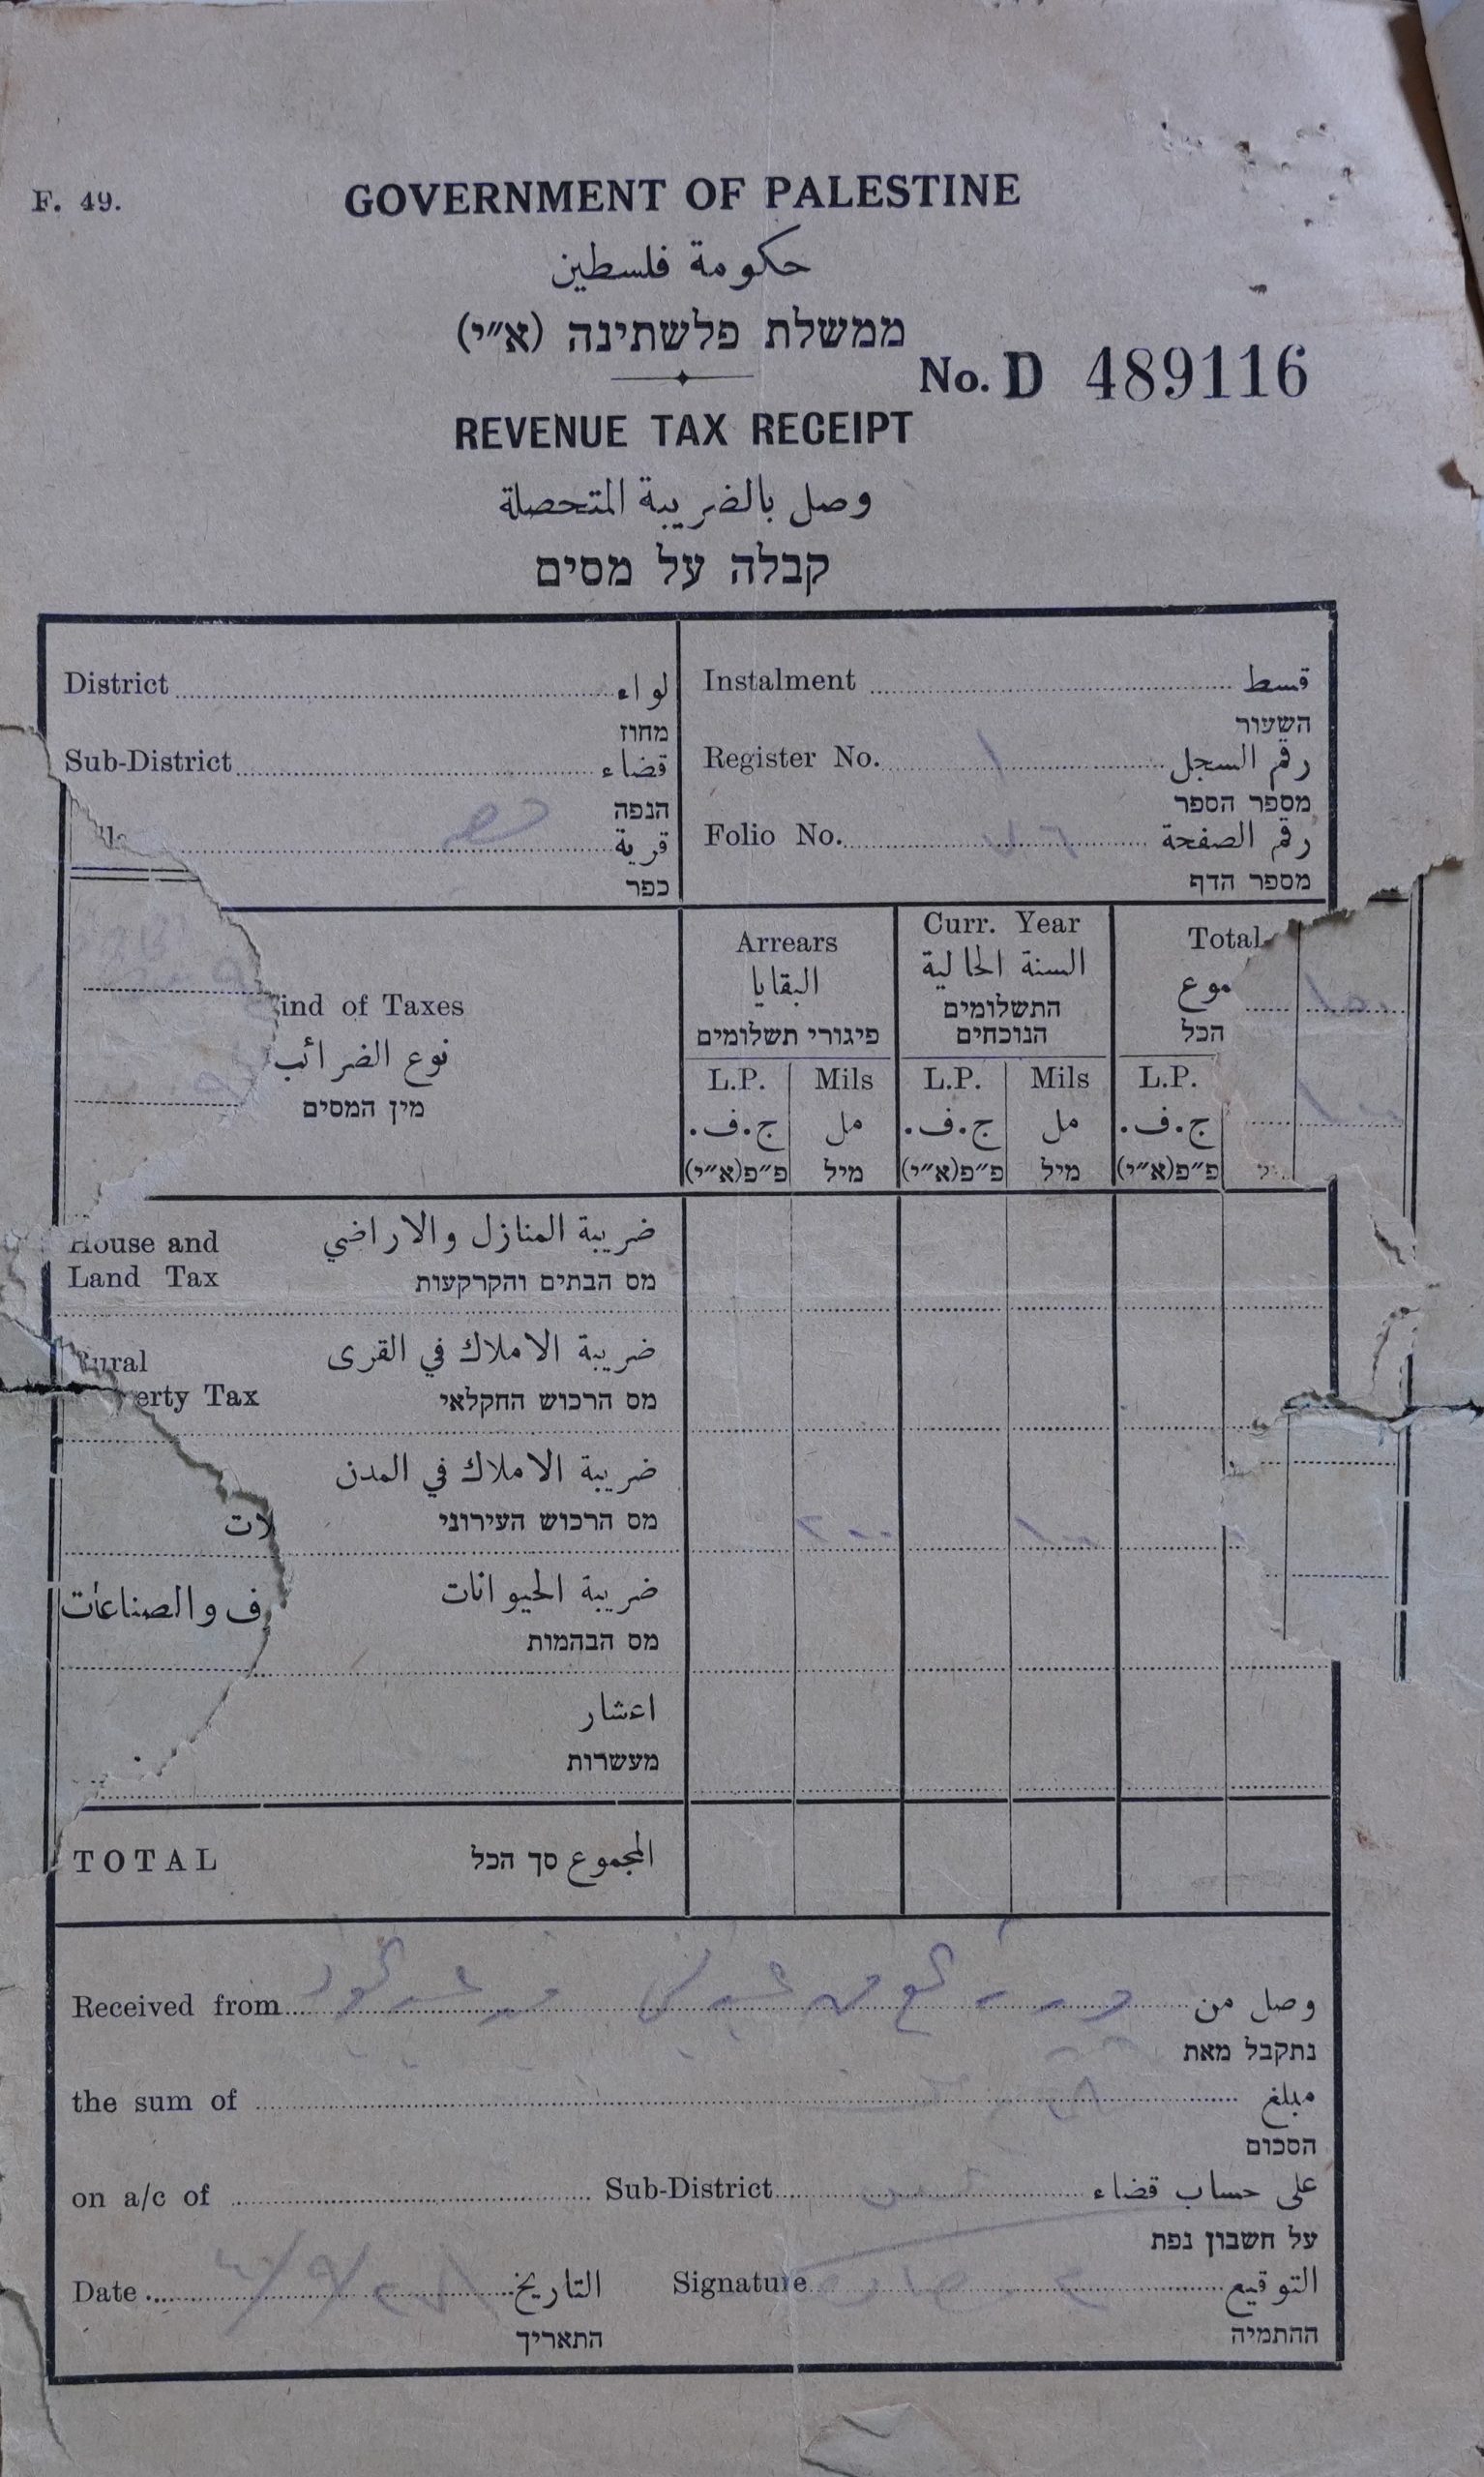 F. 49.
GOVERNMENT OF PALESTINE
حكومة فلسطين
ממשלת פלשתינה (א״י)
No. D 489116
REVENUE TAX RECEIPT
وصل بالضريبة المتحصلة
קבלה על מסים
District لواء
מחוז
Instalment قسط
השעור
Sub-District قضاء
הנפה
Register No. ١ رقم السجل
מספר הספר
قرية
כפר
Folio No. رقم الصفحة
מספר הדף
ind of Taxes
نوع الضرائب
מין המסים
Arrears
البقايا
פיגורי תשלומים
Curr. Year
السنة الحالية
התשלומים
הנוכחים
Total
موع
הכל
L.P. Mils L.P. Mils L.P.
ج.ف. مل ج.ف. مل ج.ف.
פ״פ(א״י) מיל פ״פ(א״י) מיל פ״פ(א״י)
House and
Land Tax
ضريبة المنازل والاراضي
מס הבתים והקרקעות
Rural
erty Tax
ضريبة الاملاك في القرى
מס הרכוש החקלאי
ضريبة الاملاك في المدن
מס הרכוש העירוני
لات
ضريبة الحيوانات
ف والصناعات
מס הבהמות
اعشار
מעשרות
TOTAL المجموع סך הכל
Received from وصل من
נתקבל מאת
the sum of مبلغ
הסכום
on a/c of Sub-District على حساب قضاء
על חשבון נפת
Date التاريخ
התאריך
Signature التوقيع
ההתמיה